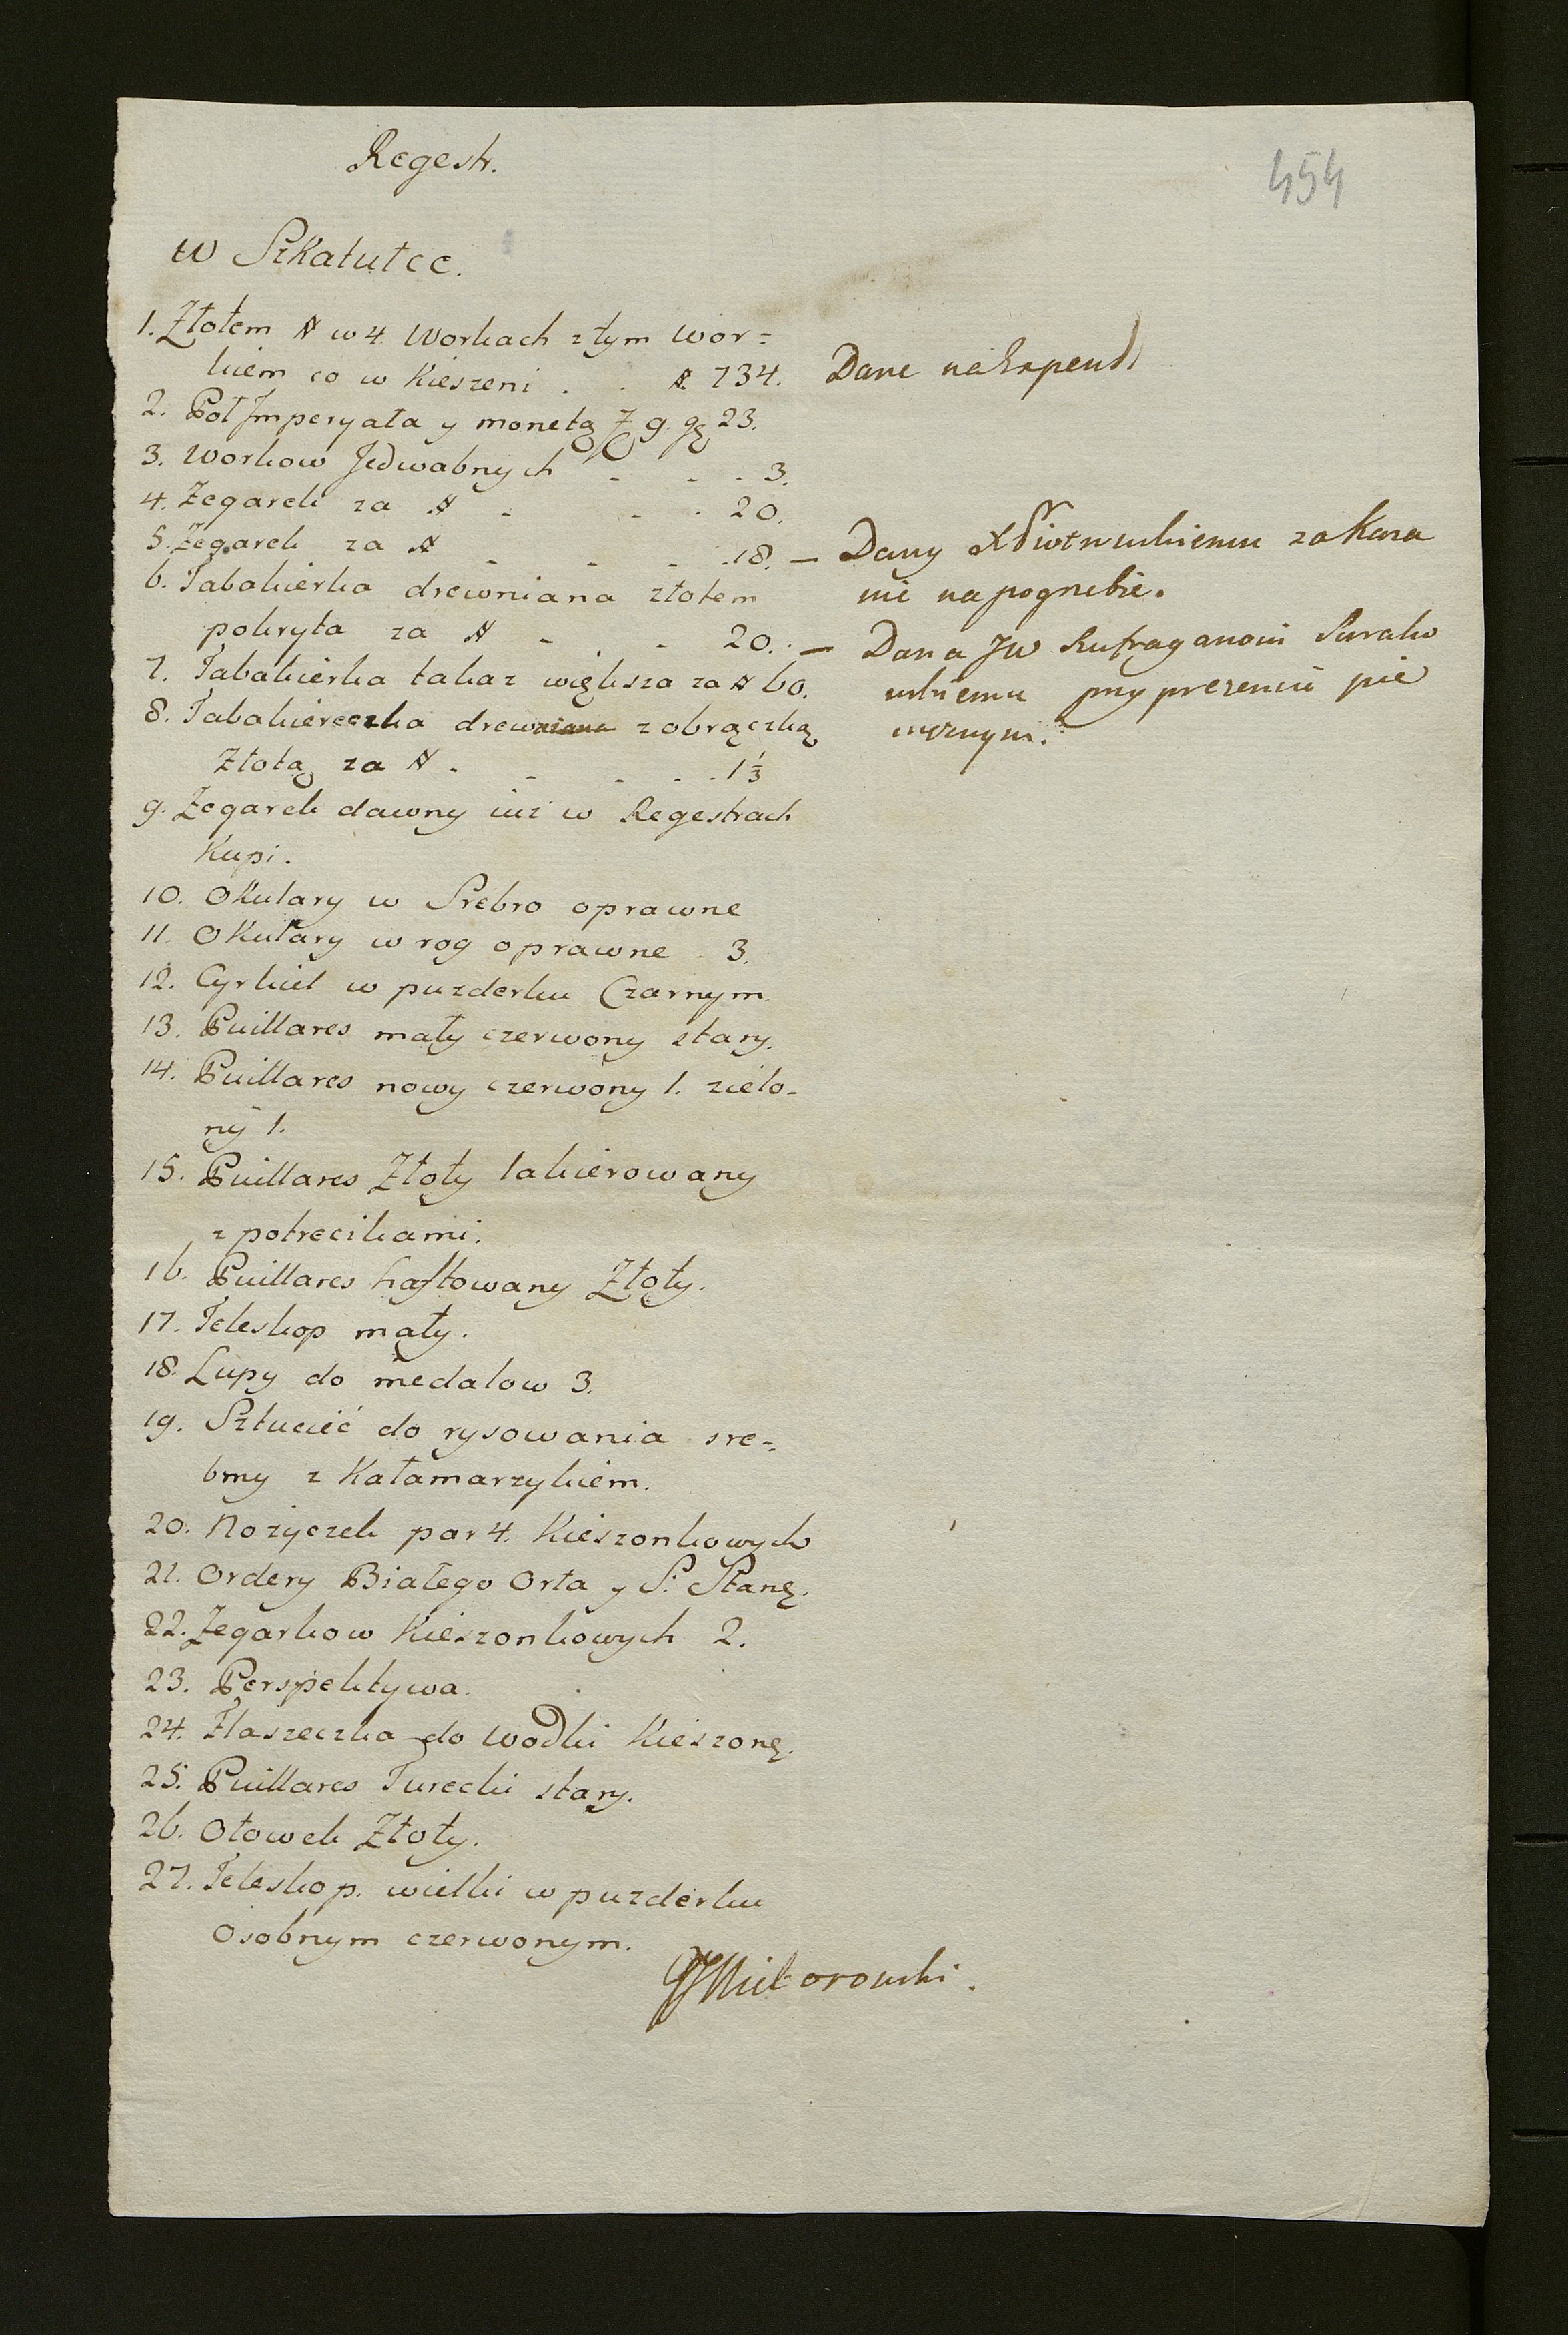 Regestr.
454
w Szkatułce.
1. Złotem # w 4 Workach z tym wor=
kiem co w Kieszeni . . # 734.
Dane na Expens
2. Poł Jmperyała y monetą Z g. gr 23.
3. Workow Jedwabnych - - . 3.
4. Zegarek za # - - . 20.
5. Zegarek za # - - . 18. —
Dany X Piotrowskiemu za Kaza
nie na pogrzebie.
6. Tabakierka drewniana złotem
pokryta za # - . - 20. —
Dana JW Sufraganowi
7. Tabakierka takaz większa za # 60.
przy prezenciu pie
8. Tabakiereczka drewniana z obrączką
Złotą za # . - - . . 1 1/3
9. Zegarek dawny iuż w Regestrach
Kupi.
10. Okulary w Srebro oprawne
11. Okulary w rog oprawne . 3.
12. Cyrkiel w puzderku Czarnym
13. Puillares mały czerwony stary.
14. Puillares nowy czerwony 1. zielo-
ny 1.
15. Puillares Złoty lakierowany
z potrecikami.
16. Puillares haftowany Złoty.
17. Teleskop mały.
18. Lupy do medalow 3.
19. Sztuciec do rysowania sre=
brny z Kałamarzykiem.
20. Nożyczek par 4. Kieszonkowych
21. Ordery Białego Orła y S: Stanę.
22. Zegarkow Kieszonkowych 2.
23. Perspektywa.
24. Flaszeczka do wodki Kieszonę.
25. Puillares Turecki stary.
26. Ołowek Złoty.
27. Teleskop. wielki w puzderku
Osobnym czerwonym.